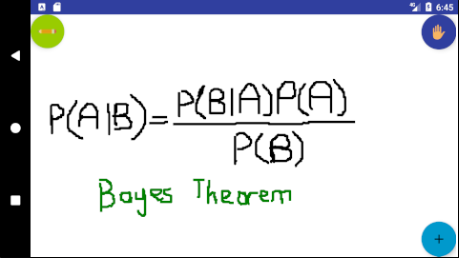 6:45
P(A|B)=P(B|A)P(A)
P(B)
Bayes Theorem